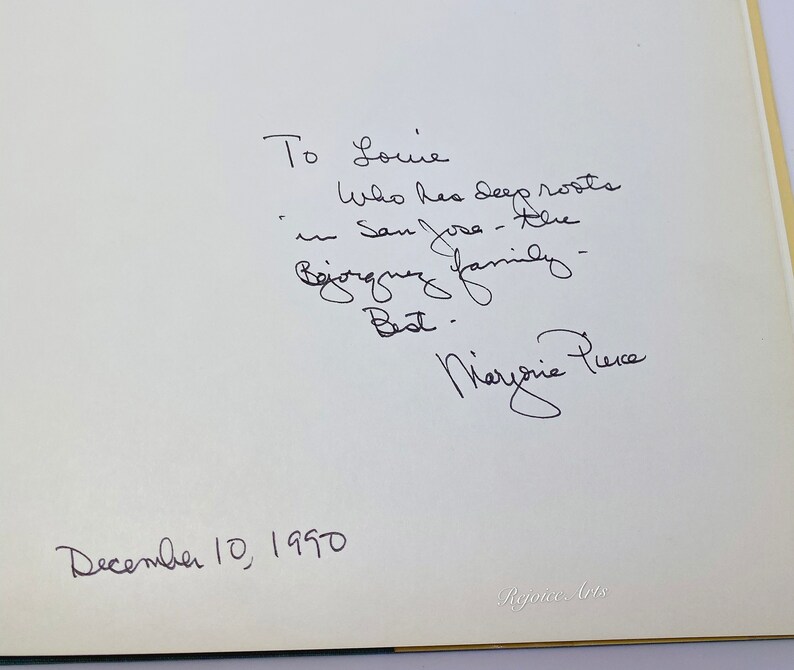 To Louie
Who has deep roots
in San Jose - the
Bojorquez family -
Best -
Marjorie Pierce
December 10, 1990
Rejoice Arts